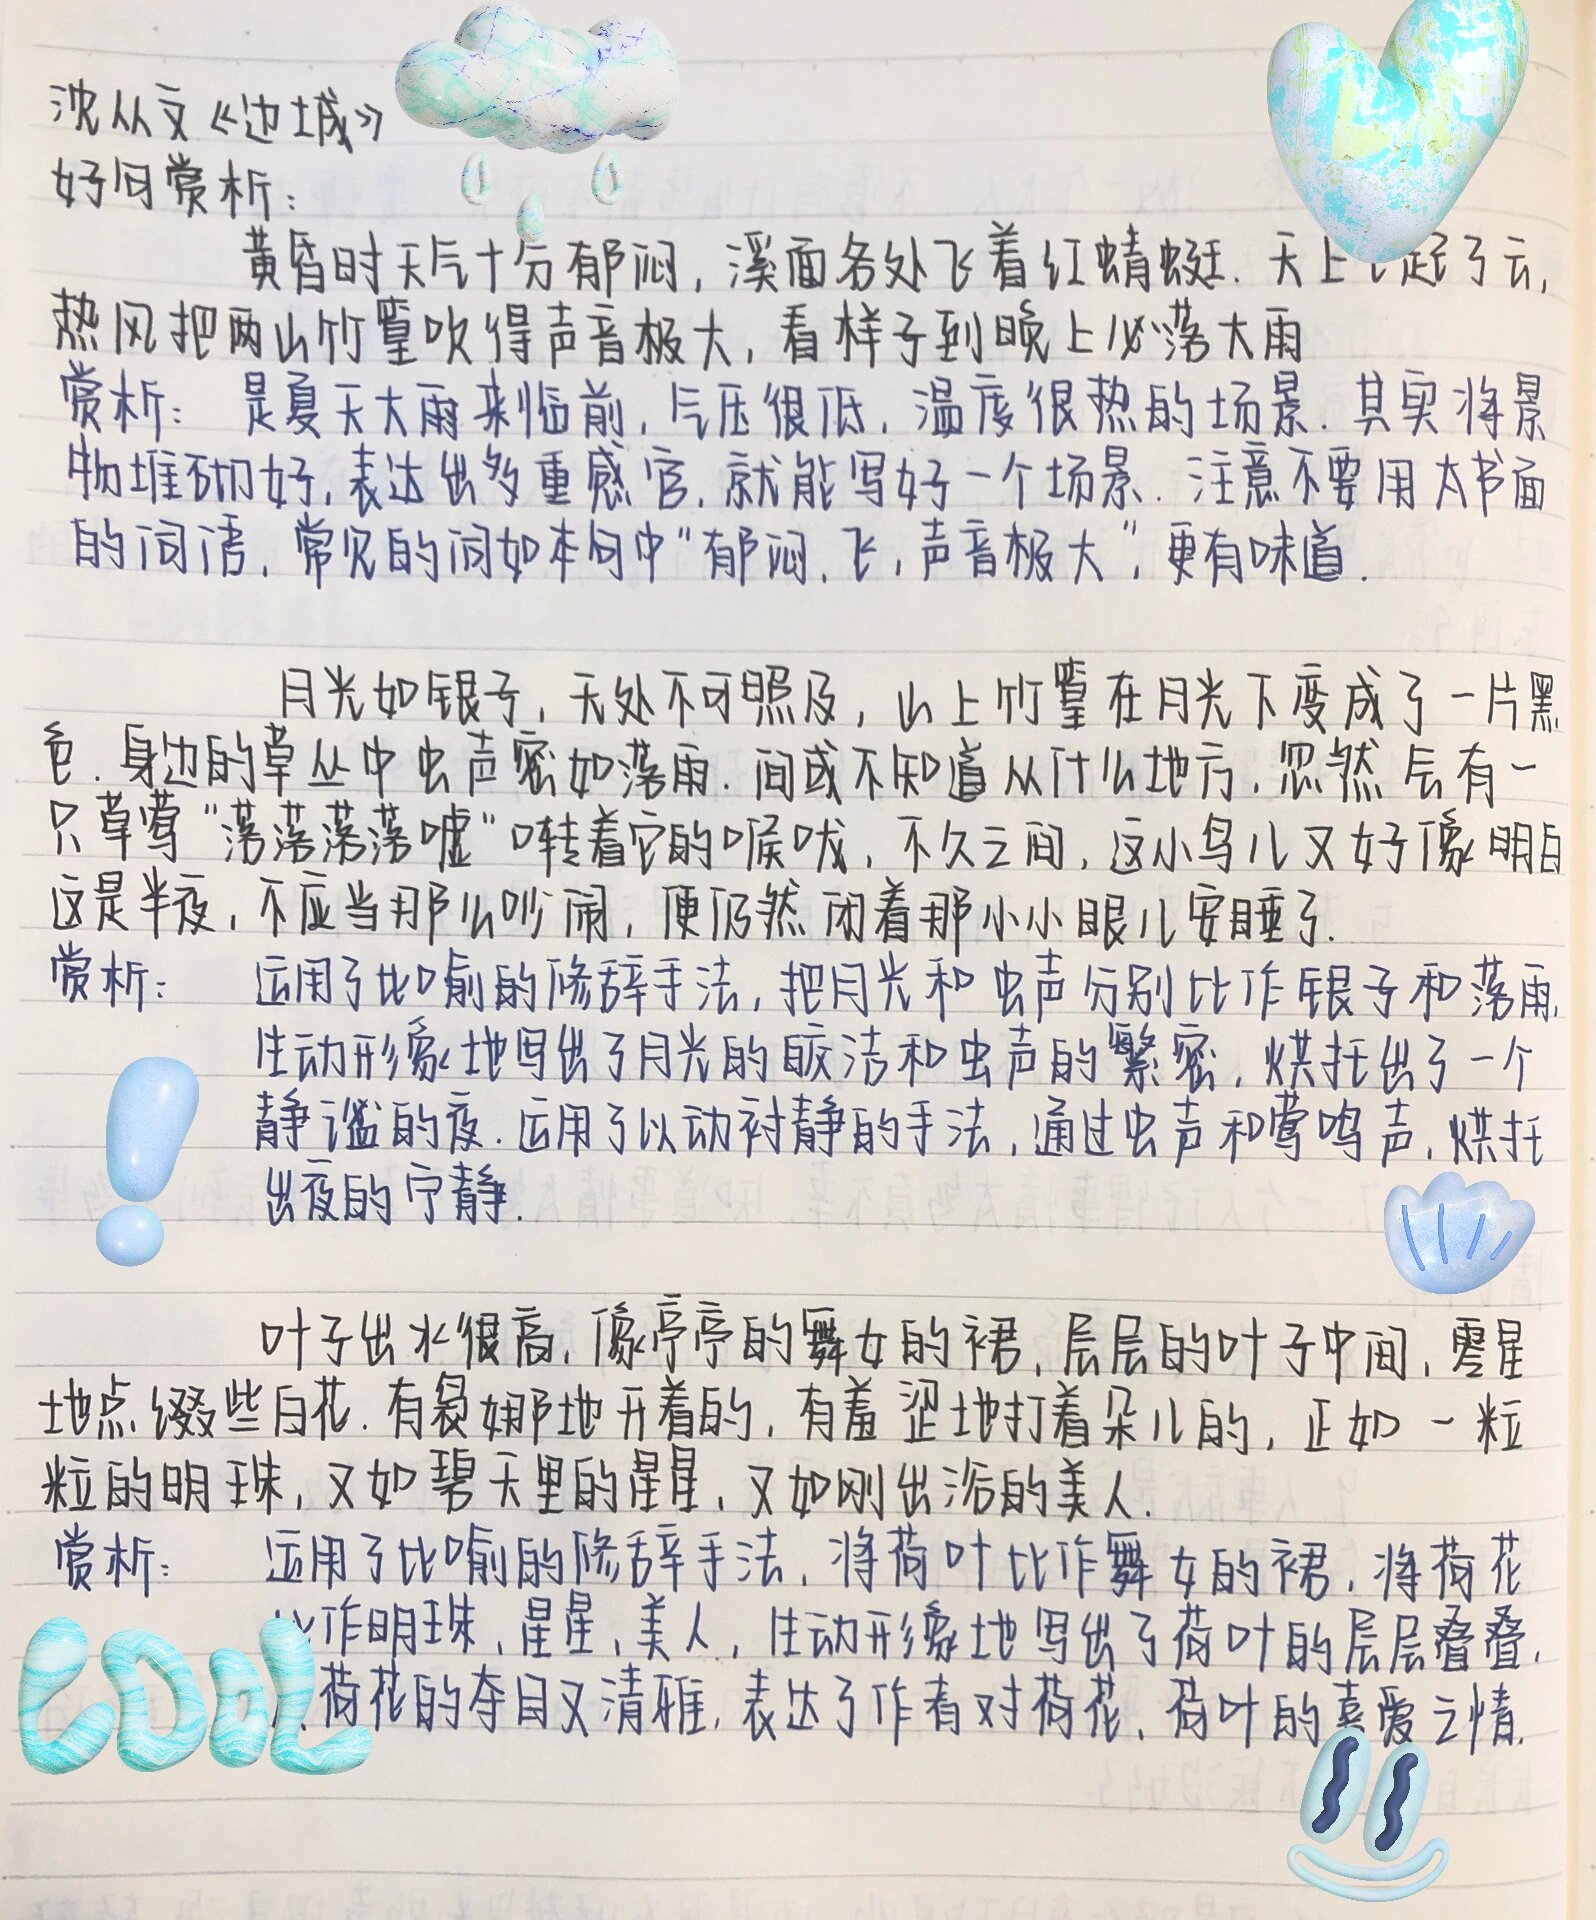 沈从文《边城》
好句赏析：
黄昏时天气十分郁闷，溪面各处飞着红蜻蜓．天上 起了云，
热风把两山竹篁吹得声音极大，看样子到晚上必落大雨
赏析：是夏天大雨来临前，气压很低，温度很热的场景．其实将景
物堆砌好，表达出多重感官，就能写好一个场景．注意不要用太书面
的词语，常见的词如本句中“郁闷，飞，声音极大”，更有味道．
月光如银子，无处不可照及，山上竹篁在月光下变成了一片黑
色．身边的草丛中虫声密如落雨．间或不知道从什么地方，忽然会有一
只草莺“落落落落嘘”啭着它的喉咙，不久之间，这小鸟儿又好像明白
这是半夜，不应当那么吵闹，便仍然闭着那小小眼儿安睡了．
赏析：运用了比喻的修辞手法，把月光和虫声分别比作银子和落雨，
生动形象地写出了月光的皎洁和虫声的繁密，烘托出了一个
静谧的夜．运用了以动衬静的手法，通过虫声和莺鸣声，烘托
出夜的宁静．
叶子出水很高，像亭亭的舞女的裙，层层的叶子中间，零星
地点缀些白花．有袅娜地开着的，有羞涩地打着朵儿的，正如一粒
粒的明珠，又如碧天里的星星，又如刚出浴的美人．
赏析：运用了比喻的修辞手法，将荷叶比作舞女的裙，将荷花
比作明珠，星星，美人，生动形象地写出了荷叶的层层叠叠，
荷花的夺目又清雅，表达了作者对荷花，荷叶的喜爱之情．
COOL